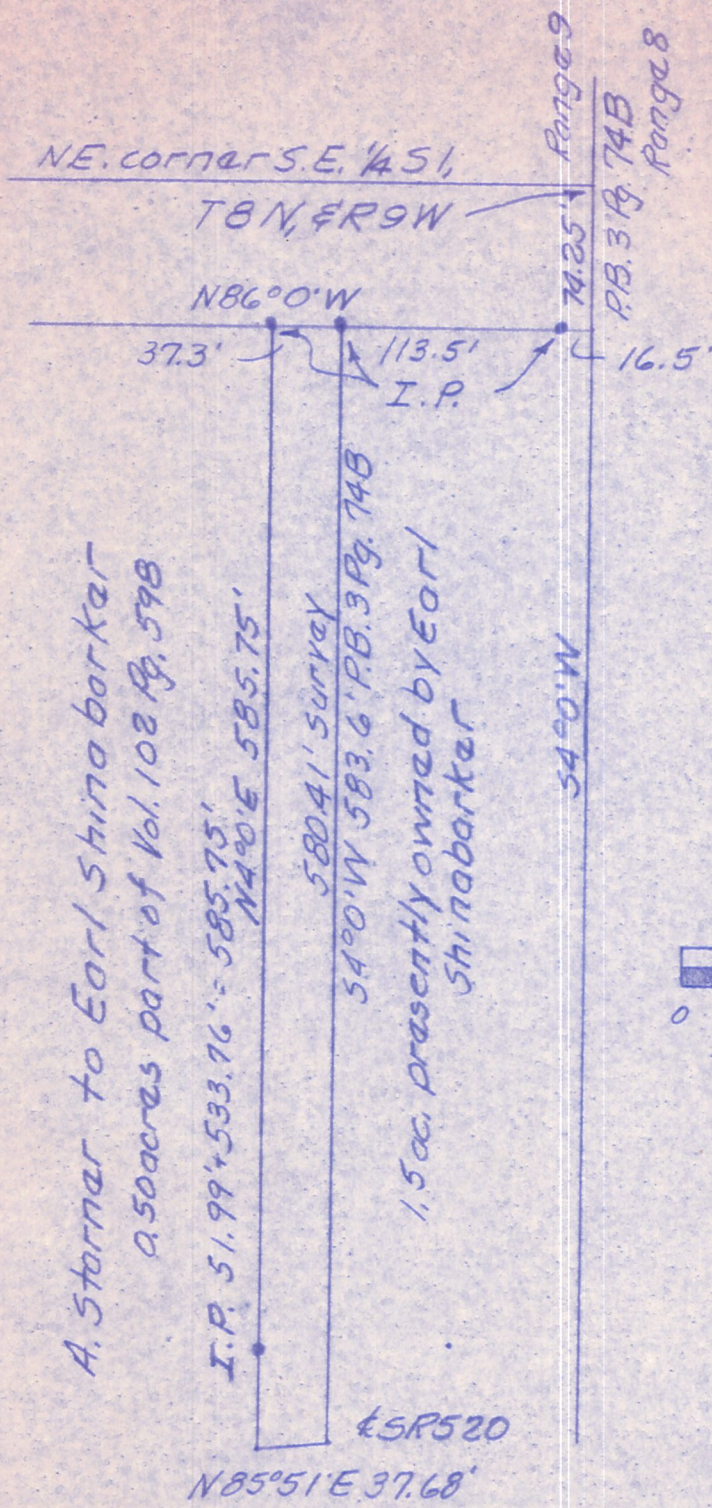 Range 9
P.B. 3 Pg. 74B
Range 8
NE. corner S.E. 1/4 S1,
T8N, & R9W
74.25'
N86°0'W
37.3'
113.5'
16.5'
I.P.
A. Starner to Earl Shinabarker
0.50 acres part of Vol. 102 Pg. 598
I.P. 51.99'+533.76' = 585.75'
N4°0'E 585.75'
580.41' survey
S4°0'W 583.6' P.B. 3 Pg. 74B
1.5 ac. presently owned by Earl
Shinabarker
S4°0'W
℄ SR520
N85°51'E 37.68'